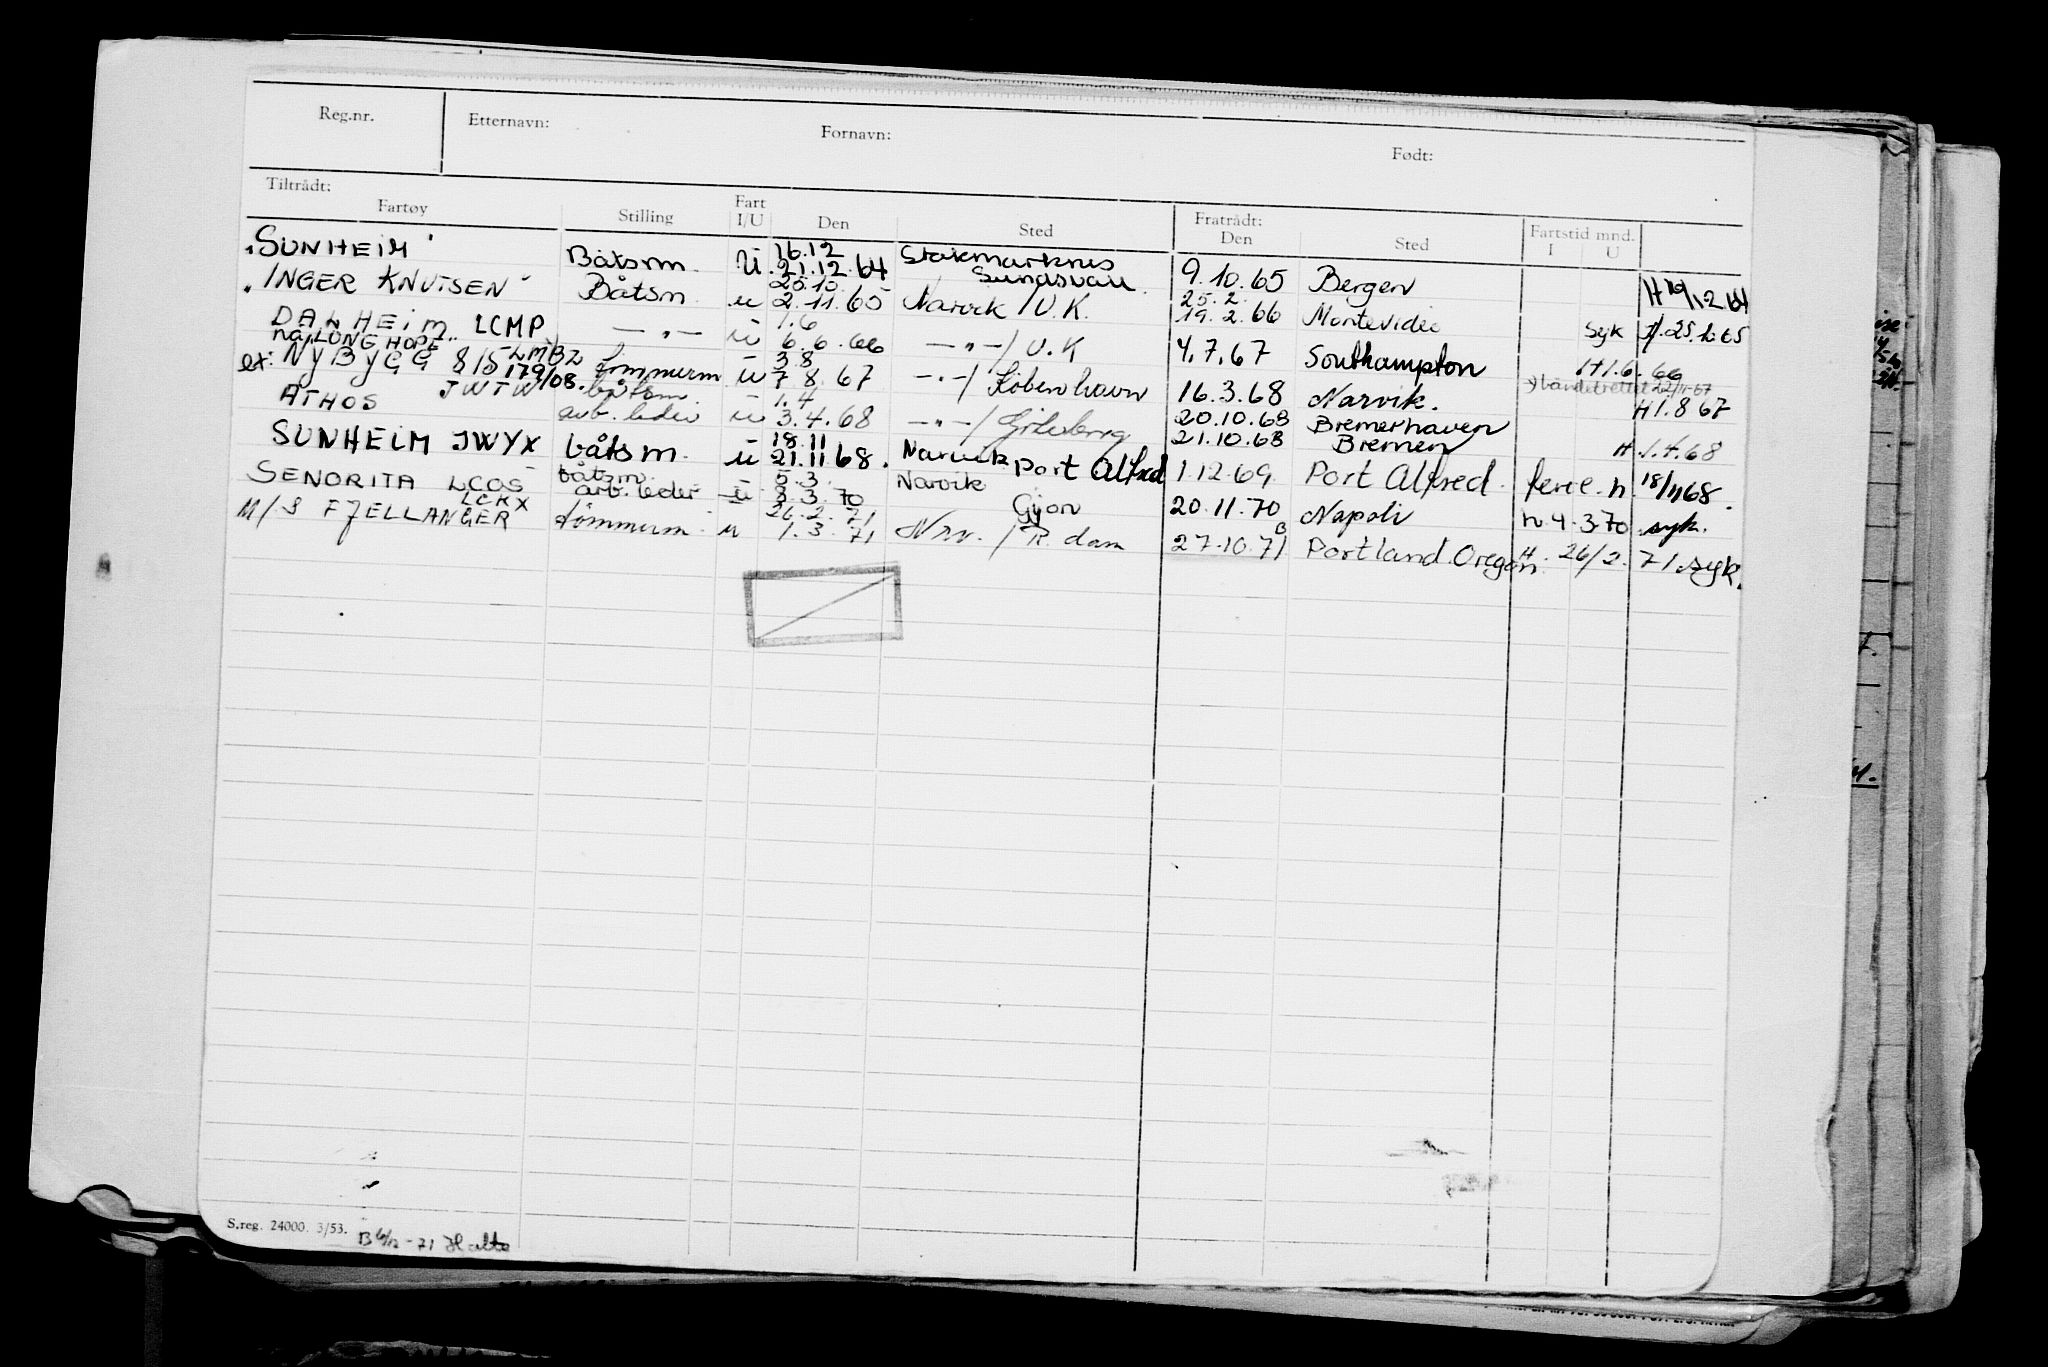 Reg.nr. Etternavn: Fornavn: Født:
Tiltrådt: Fratrådt:
Fartøy Stilling Fart I/U Den Sted Den Sted Fartstid mnd. I U
"SUNHEIM" Båtsm. U. 16.12 21.12.64 Stokmarknes Sundsvall. 9.10.65 Bergen
"INGER KNUTSEN" Båtsm u 25.10. 2.11.65 Narvik / U.K. 25.2. 19.2.66 Montevideo Syk H.25.10.65
DALHEIM. LCMP —"— u 1.6 6.6.66 —"—/ U.K 4.7.67 Southampton H1.6.66
nå: LONG HOPE LMBZ
ex: NYBYGG 815 179/08. tömmerm u 3.8 7.8.67 —"—/ Köbenhavn 16.3.68 Narvik. H1.8 67
ATHOS JWTW båtsm. arb. leder u 1.4 3.4.68 —"—/ Göteborg 20.10.68 Bremerhaven 21.10.68 Bremen H 1.4.68
SUNHEIM JWYX båtsm. u 18.11 21.11 68. Narvik Port Alfred 1.12.69 Port Alfred. ferie. h. 18/11 68.
SENORITA LCOS båtsm. arb. leder u 5.3. 8.3.70 Narvik Gijon 20.11.70 Napoli h. 4.3.70 syk.
M/S FJELLANGER LCKX tömmerm. u 26.2.71 1.3.71 Nrv. / R.dam 27.10.71 B Portland Oregon. H. 26/2. 71 syk.
S.reg. 24000. 3/53.